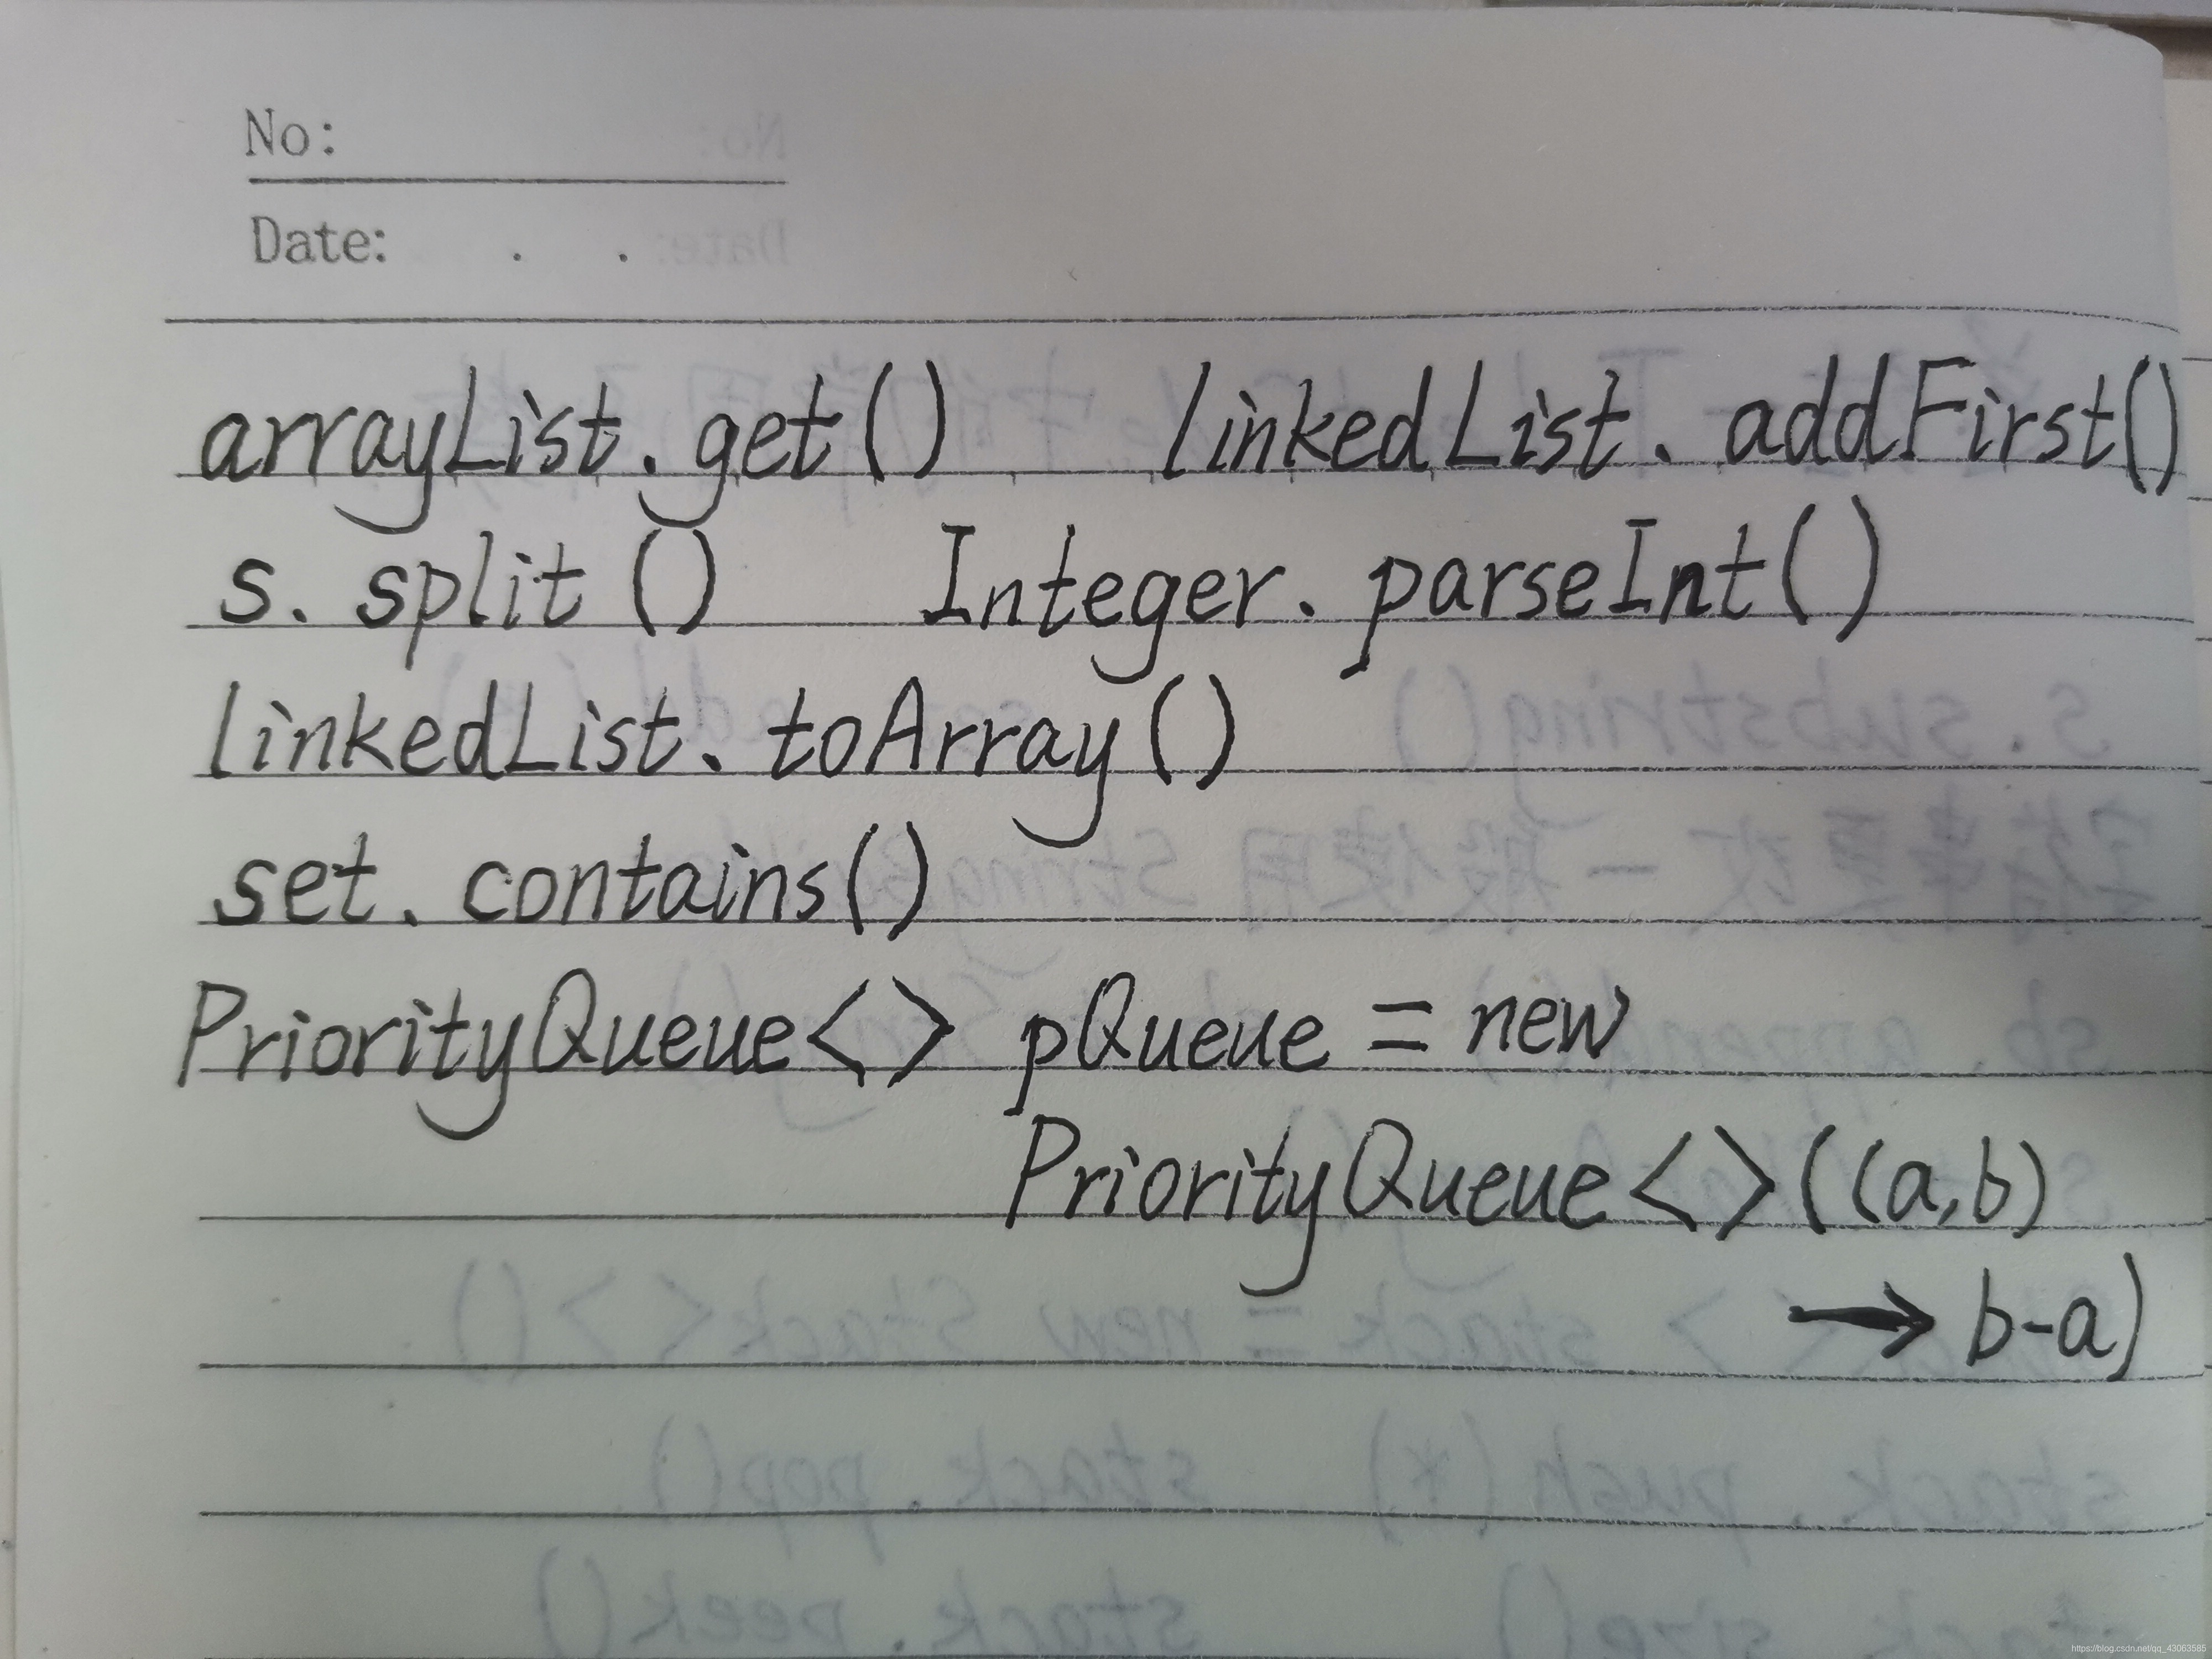 No:
Date: . .
arrayList.get() linkedList.addFirst()
s.split() Integer.parseInt()
linkedList.toArray()
set.contains()
PriorityQueue<> pQueue = new
PriorityQueue<>((a,b)
→ b-a)
https://blog.csdn.net/qq_43063585